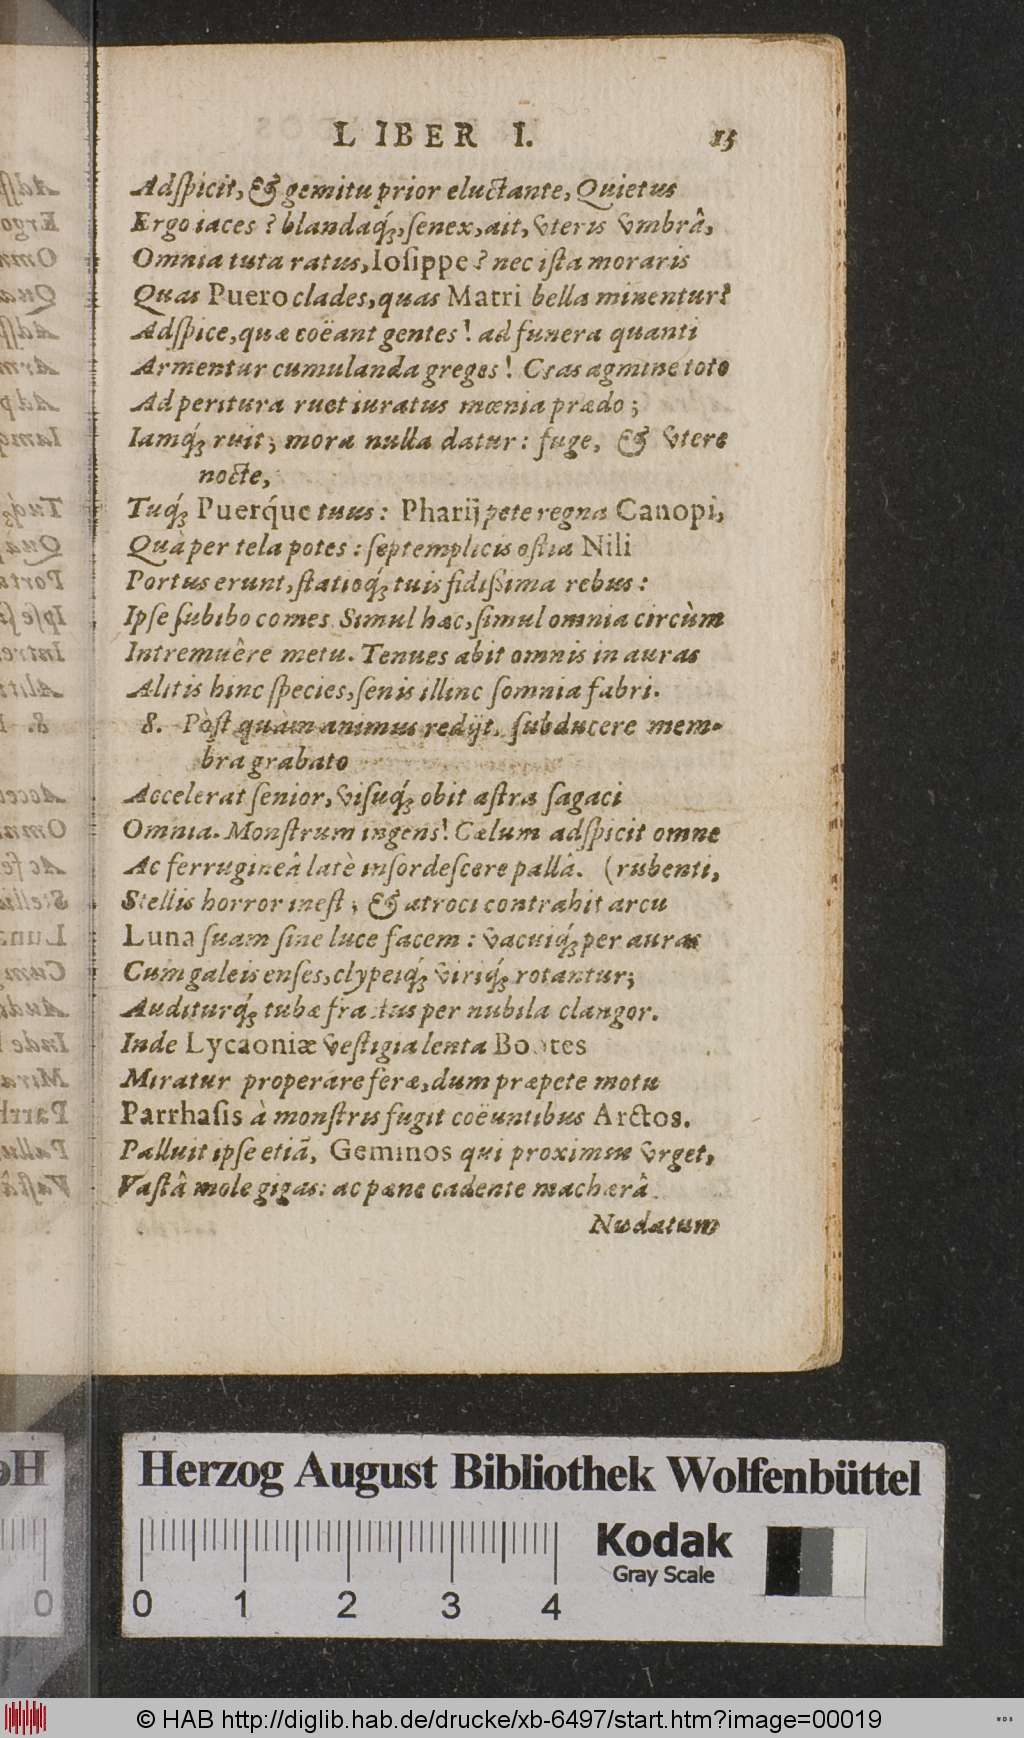 LIBER I. 15
Adſpicit, & gemitu prior eluctante, Quietus
Ergo iaces? blandaq́;, ſenex, ait, vteris vmbrâ,
Omnia tuta ratus, Ioſippe? nec iſta moraris
Quas Puero clades, quas Matri bella minentur?
Adſpice, quæ coëant gentes! ad funera quanti
Armentur cumulanda greges! Cras agmine toto
Ad peritura ruet iuratus mœnia prædo;
Iamq́; ruit; mora nulla datur: fuge, & vtere
nocte,
Tuq́; Puerq́ue tuus: Pharij pete regna Canopi,
Quà per tela potes: ſeptemplicis oſtia Nili
Portus erunt, ſtatioq́; tuis fidiſsima rebus:
Ipſe ſubibo comes. Simul hæc, ſimul omnia circùm
Intremuêre metu. Tenues abit omnis in auras
Alitis hinc ſpecies, ſenis illinc ſomnia fabri.
8. Pòſt quàm animus redijt, ſubducere mem-
bra grabato
Accelerat ſenior, viſuq́; obit aſtra ſagaci
Omnia. Monſtrum ingens! Cælum adſpicit omne
Ac ferrugineâ latè inſordeſcere pallâ. (rubenti,
Stellis horror ineſt; & atroci contrahit arcu
Luna ſuam ſine luce facem: vacuiq́; per auras
Cum galeis enſes, clypeiq́; viriq́; rotantur;
Auditurq́; tubæ fractus per nubila clangor.
Inde Lycaoniæ veſtigia lenta Bootes
Miratur properare feræ, dum præpete motu
Parrhaſis à monſtris fugit coëuntibus Arctos.
Palluit ipſe etiã, Geminos qui proximus vrget,
Vaſtâ mole gigas: ac pæne cadente machærâ
Nudatum
Herzog August Bibliothek Wolfenbüttel
Kodak
Gray Scale
0 1 2 3 4
© HAB http://diglib.hab.de/drucke/xb-6497/start.htm?image=00019